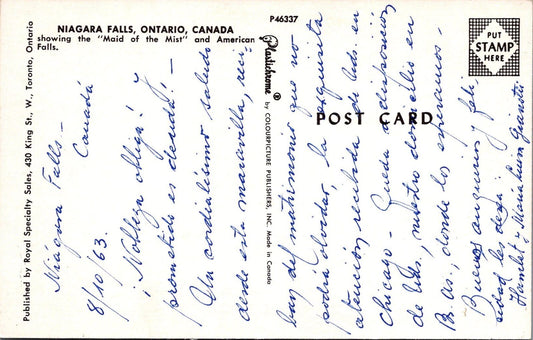 NIAGARA FALLS, ONTARIO, CANADA
showing the "Maid of the Mist" and American
Falls.
P46337
Published by Royal Specialty Sales, 430 King St., W., Toronto, Ontario
Plastichrome ® by COLOURPICTURE PUBLISHERS, INC. Made in Canada
POST CARD
PUT
STAMP
HERE
Niágara Falls -
Canadá
8/10/63.
¡Nobleza obliga! y
prometido es deuda! -
Un cordialísimo saludo
desde esta maravilla,
ban del matrimonio que no
podrá olvidar, la exquisita
atención recibida de Uds. en
Chicago - Queda a disposición
de Uds., nuestro domicilio en
Bs. As., donde los esperamos -
Buenos augurios y feli-
cidad les desea
Hamlet y